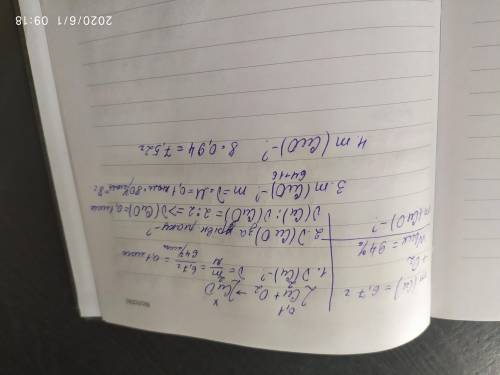 m(Cu) = 6,7 г
+ O₂
= 94%
m(CuO)-?
0,1 x
2Cu + O₂ → 2CuO
1. ν(Cu)-? ν = m/M = 6,7 г/64 г/моль = 0,1 моль
2. ν(CuO) за рівн -?
ν(Cu):ν(CuO) = 2:2 => ν(CuO)=0,1 моль
3. m(CuO)-? m=ν·M=0,1 моль·80 г/моль=8г
64+16
4. m(CuO)-? 8·0,94 = 7,52 г
2020/6/1 09:18